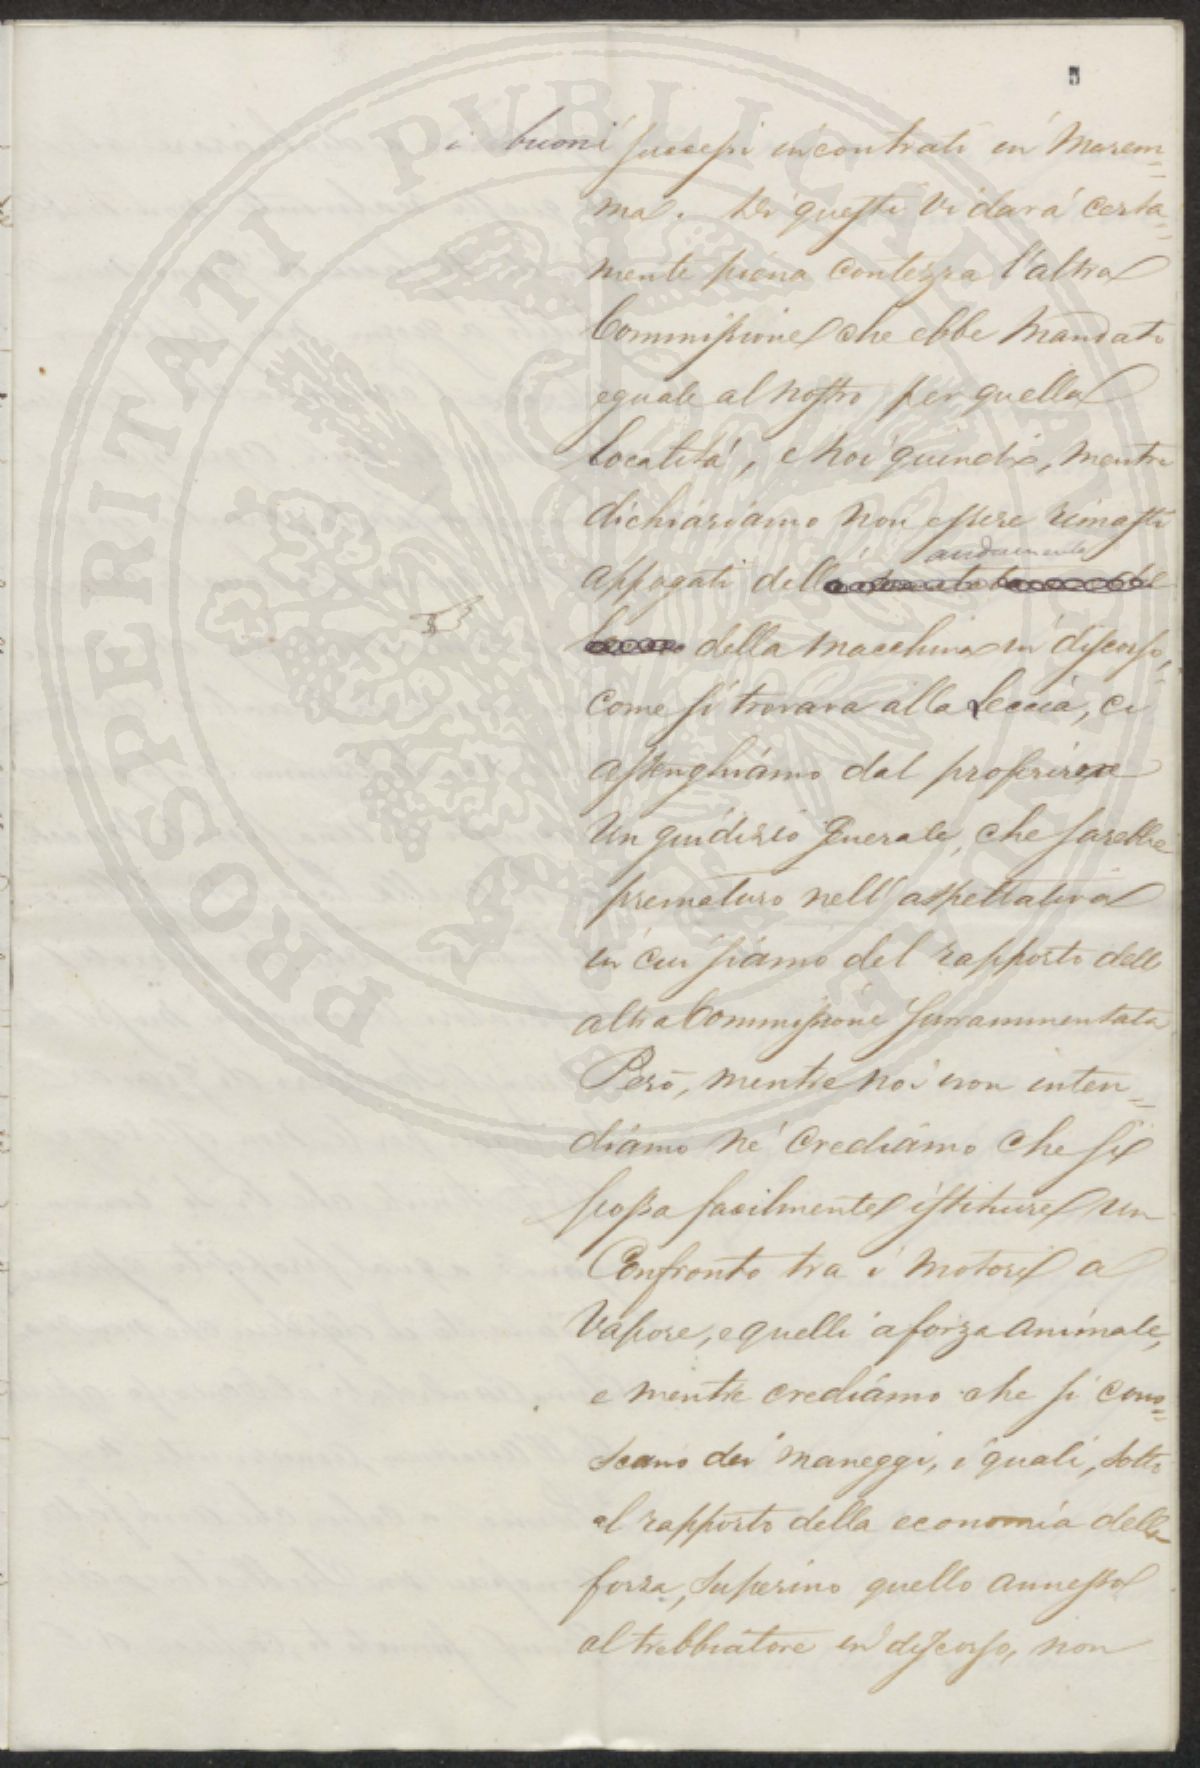 i buoni successi incontrati in Marem=
ma. Di questi vi dará certa=
mente piena contezza l'altra
Commissione che ebbe mandato
eguale al nostro per quella
localitá, e noi quindi, mentre
dichiariamo non essere rimasti
andamento
appagati dell'
della macchina in discorso,
come si trovava alla Leccia, ci
astenghiamo dal proferire
un giudizio generale, che sarebbe
prematuro nell'aspettativa
in cui siamo del rapporto dell'
altra Commissione surrammentata
Però, mentre noi non inten=
diamo né crediamo che si
possa facilmente istituire un
Confronto tra i motori a
Vapore, e quelli a forza animale,
e mentre crediamo che si cono=
scano dei maneggi, i quali, sotto
il rapporto della economia della
forza, superino quello annesso
al trebbiatore in discorso, non
PROSPERITATI PUBLICAE